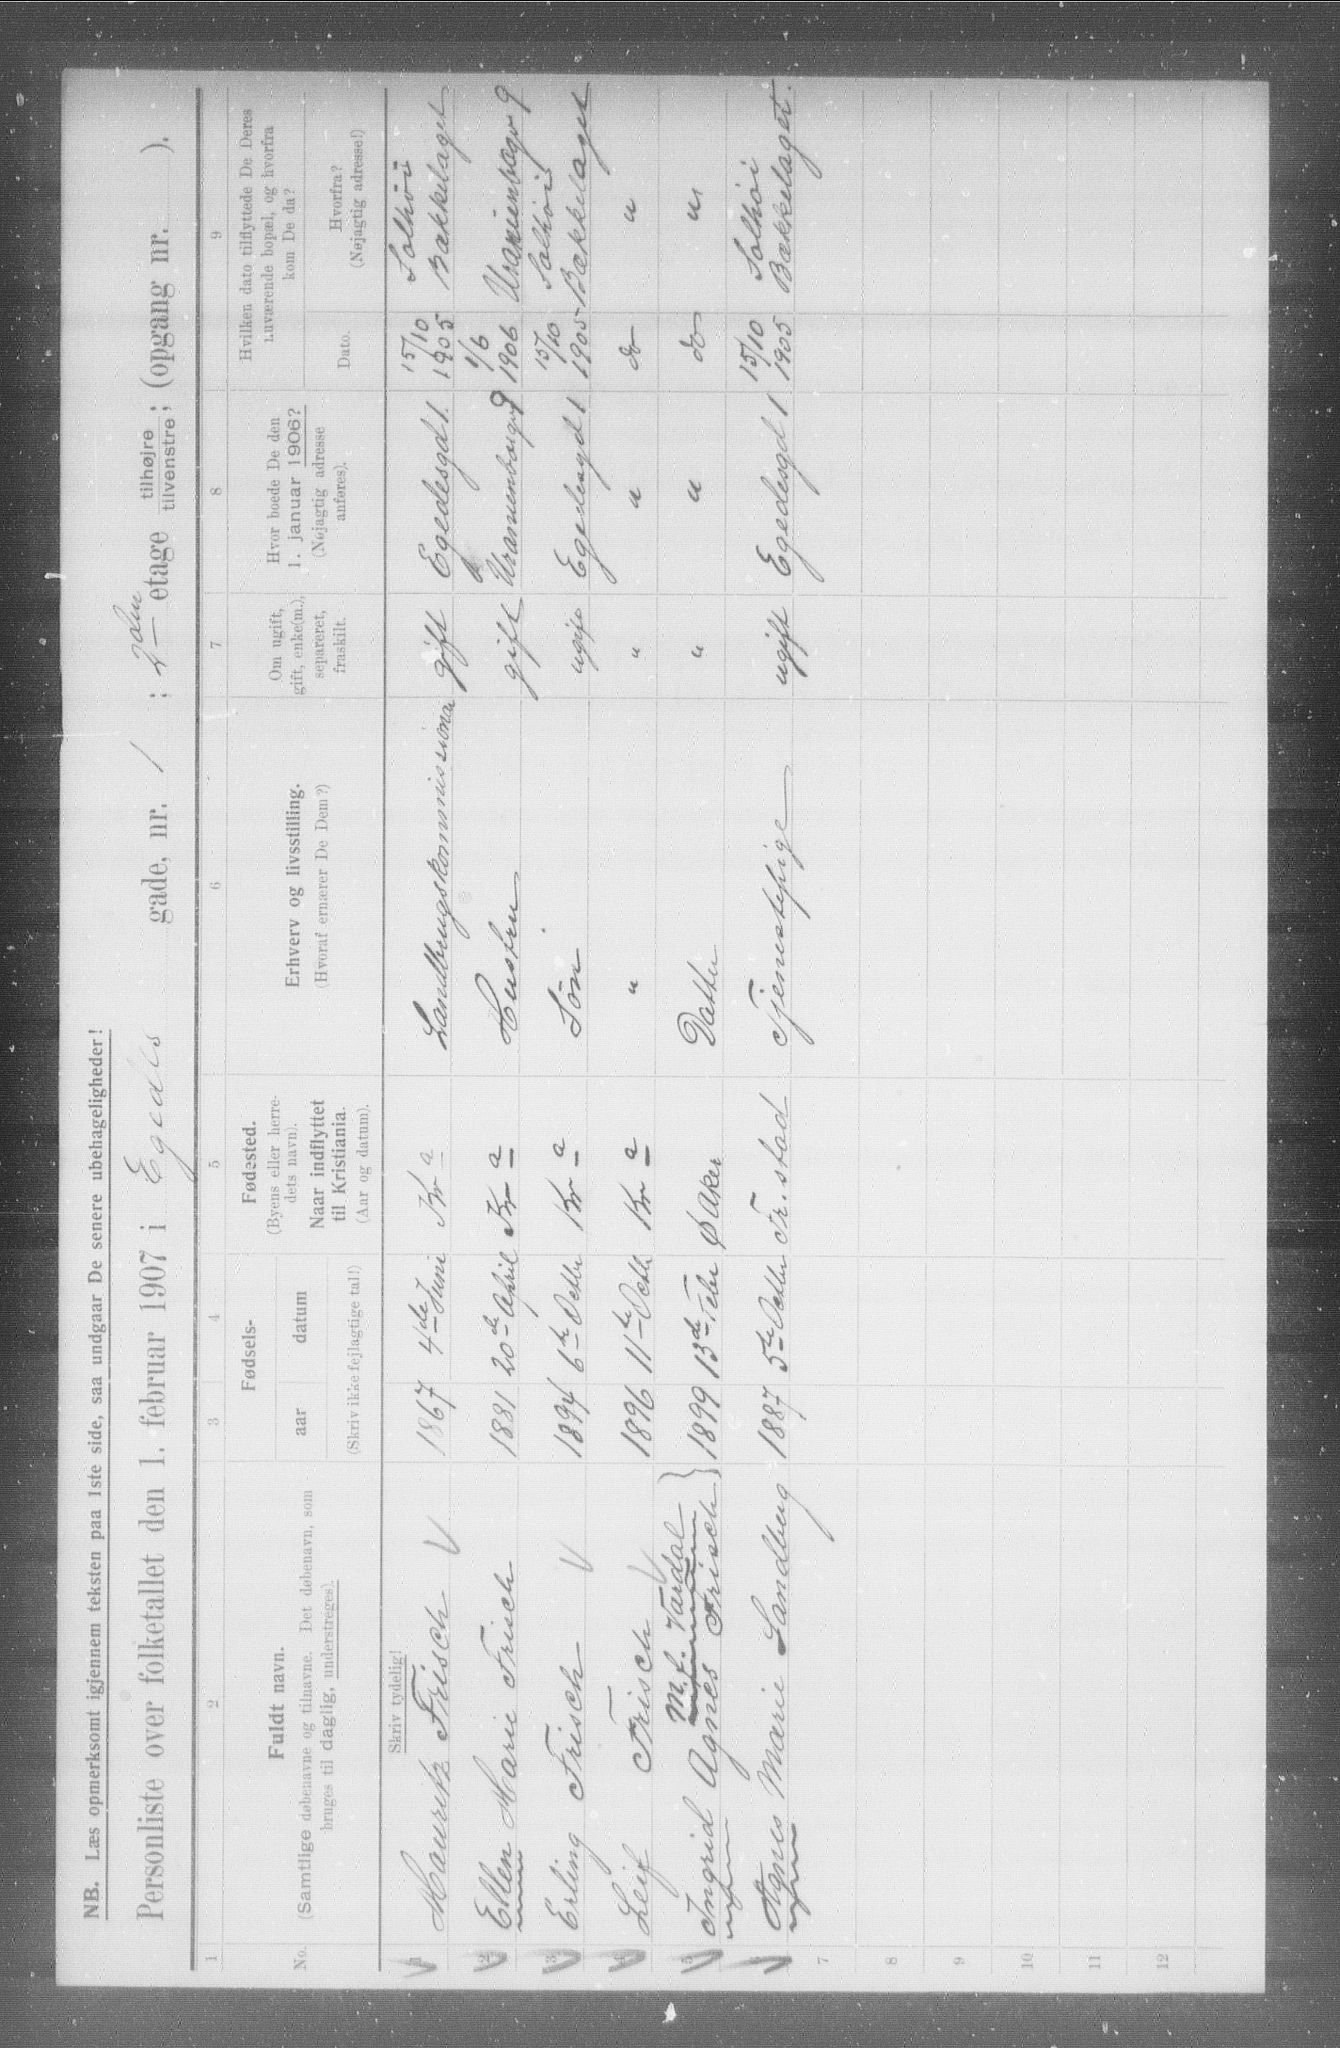 NB. Læs opmerksomt igjennem teksten paa 1ste side, saa undgaar De senere ubehageligheder!
Personliste over folketallet den 1. februar 1907 i Egedes gade, nr. 1 ; 2den etage tilhøjre tilvenstre ; (opgang nr. ).
1 2 3 4 5 6 7 8 9
No.
Fuldt navn.
(Samtlige døbenavne og tilnavne. Det døbenavn, som
bruges til daglig, understreges).
Fødsels-
aar datum
(Skriv ikke fejlagtige tal!)
Fødested.
(Byens eller herre-
dets navn).
Naar indflyttet
til Kristiania.
(Aar og datum).
Erhverv og livsstilling.
(Hvoraf ernærer De Dem?)
Om ugift,
gift, enke(m.),
separeret,
fraskilt.
Hvor boede De den
1. januar 1906?
(Nøjagtig adresse
anføres).
Hvilken dato tilflyttede De Deres
nuværende bopæl, og hvorfra
kom De da?
Dato.
Hvorfra?
(Nøjagtig adresse!)
Skriv tydelig!
1 Mauritz Frisch 1867 4de Juni Kr a Landbrugskommissionær gift Egedesgd 1. 15/10 1905 Solhøi Bækkelaget
2 Ellen Marie Frisch 1881 20de April Kr a Hustru gift Uranienborgv 9 1/6 1906 Uranienborgv 9
3 Erling Frisch 1894 6te Octbr Kr a Søn ugift Egedesgd 1 15/10 1905 Solhøi Bækkelaget
4 Leif Frisch 1896 11te Octbr Kr a " " " do "
5 Ingrid Agnes M. f. Vardal Frisch } 1899 13de Febr Ø Aker Datter " " do "
6 Agnes Marie Sandberg 1887 5te Octbr Fr.stad Tjenestepige ugift Egedesgd 1 15/10 1905 Solhøi Bækkelaget.
7
8
9
10
11
12